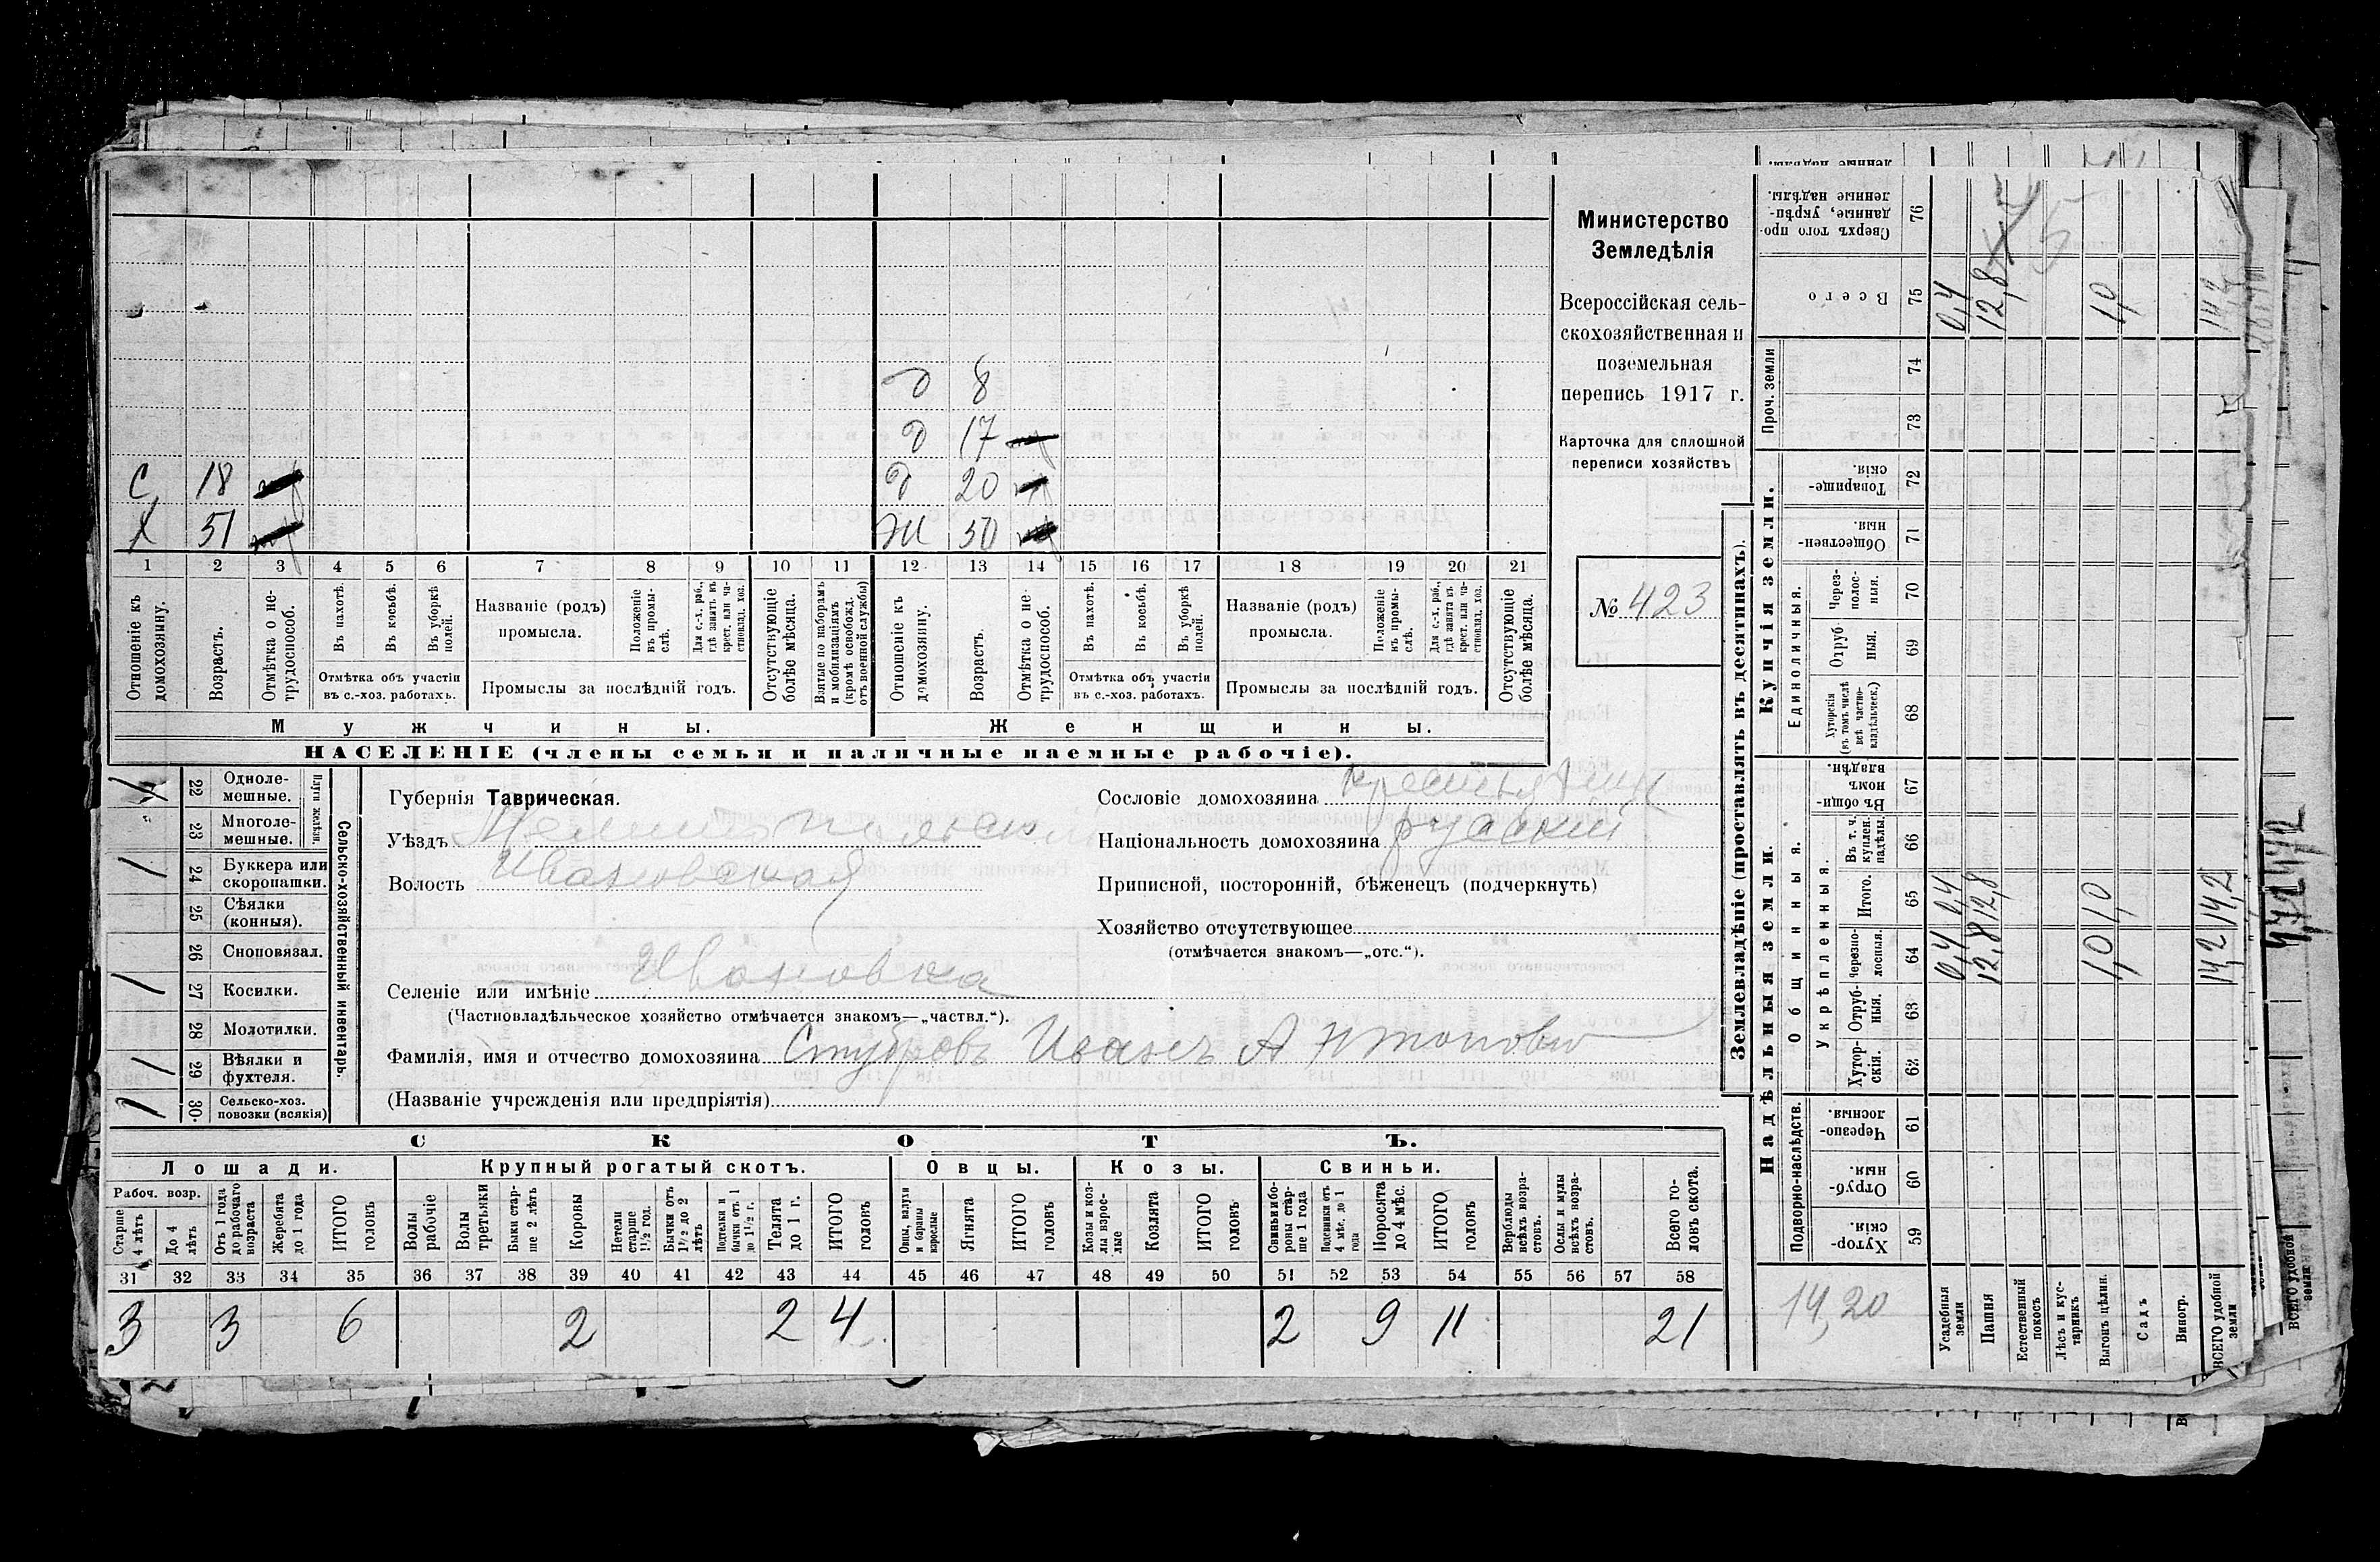 Министерство
Земледѣлія
Всероссійская сель-
скохозяйственная и
поземельная
перепись 1917 г.
Карточка для сплошной
переписи хозяйствъ
№ 423
д 8
д 17
С 18
д 20
Х 51
Ж 50
1 2 3 4 5 6 7 8 9 10 11 12 13 14 15 16 17 18 19 20 21
Отношеніе къ домохозяину.
Возрастъ.
Отмѣтка о не-трудоспособ.
Въ пахотѣ.
Въ косьбѣ.
Въ уборкѣ полей.
Отмѣтка объ участіи
въ с.-хоз. работахъ.
Названіе (родъ)
промысла.
Положеніе въ промы-слѣ.
Для с.-х. раб., гдѣ занятъ въ крест. или ча-стновлад. хоз.
Промыслы за послѣдній годъ.
Отсутствующіе болѣе мѣсяца.
Взятые по наборамъ и мобилизаціямъ (кромѣ освобожд. отъ военной службы)
Отношеніе къ домохозяину.
Возрастъ.
Отмѣтка о не-трудоспособ.
Въ пахотѣ.
Въ косьбѣ.
Въ уборкѣ полей.
Отмѣтка объ участіи
въ с.-хоз. работахъ.
Названіе (родъ)
промысла.
Положеніе въ промы-слѣ.
Для с.-х. раб., гдѣ занята въ крест. или ча-стновлад. хоз.
Промыслы за послѣдній годъ.
Отсутствующіе болѣе мѣсяца.
Мужчины. Женщины.
НАСЕЛЕНІЕ (члены семьи и наличные наемные рабочіе).
Сельско-хозяйственный инвентарь.
Плуги желѣзн.
22 Одноле-мешные.
23 Многоле-мешные.
1 24 Буккера или скоропашки.
25 Сѣялки (конныя).
26 Сноповязал.
1 27 Косилки.
28 Молотилки.
1 29 Вѣялки и фухтеля.
1 30. Сельско-хоз. повозки (всякія)
Губернія Таврическая.
Уѣздъ Мелитопольскій
Волость Ивановская
Селеніе или имѣніе Ивановка
(Частновладѣльческое хозяйство отмѣчается знакомъ—„частвл.“).
Фамилія, имя и отчество домохозяина Иванъ Антоновъ
(Названіе учрежденія или предпріятія)
Сословіе домохозяина крестьянинъ
Національность домохозяина русскій
Приписной, посторонній, бѣженецъ (подчеркнуть)
Хозяйство отсутствующее
(отмѣчается знакомъ—„отс.“).
СКОТЪ.
Лошади. Крупный рогатый скотъ. Овцы. Козы. Свиньи.
Рабоч. возр.
Старше 4 лѣтъ
До 4 лѣтъ
Отъ 1 года до рабочаго возраста
Жеребята до 1 года
ИТОГО головъ
Волы рабочіе
Волы третьяки
Быки стар-ше 2 лѣтъ
Коровы
Нетели старше 1½ год.
Бычки отъ 1½ до 2 лѣтъ
Подтелки и бычки отъ 1 до 1½ г.
Телята до 1 г.
ИТОГО головъ
Овцы, валухи и бараны взрослые
Ягнята
ИТОГО головъ
Козы и коз-лы взрос-лые
Козлята
ИТОГО головъ
Свиньи и бо-ровы стар-ше 1 года
Подсвинки отъ 4 мѣс. до 1 года
Поросята до 4 мѣс.
ИТОГО головъ
Верблюды всѣхъ возра-стовъ.
Ослы и мулы всѣхъ возра-стовъ.
Всего го-ловъ скота.
31 32 33 34 35 36 37 38 39 40 41 42 43 44 45 46 47 48 49 50 51 52 53 54 55 56 57 58
3 3 6 2 2 4 2 9 11 21
Землевладѣніе (проставлять въ десятинахъ).
Купчія земли.
Надѣльныя земли.
Сверхъ того про-данные, укрѣп-ленные надѣлы. 76
Всего 75 0,4 12,8 1,0
Проч. земли 74
73
Товарище-скія. 72
Обществен-ныя. 71
Единоличныя.
Через-полос-ныя. 70
Отруб-ныя. 69
Хуторскія (въ томъ числѣ всѣ частно-владѣльческ.) 68
Общинныя.
Въ общин-номъ владѣн. 67
Укрѣпленныя.
Въ т. ч. куплен. надѣлы. 66
Итого. 65 0,4 12,8 1,0 14,2
Черезпо-лосныя. 64 0,4 12,8 1,0 14,2
Отруб-ныя. 63
Хутор-скія. 62
Подворно-наслѣдств.
Черезпо-лосныя. 61
Отруб-ныя. 60
Хутор-скія. 59
14,20
Усадебныя земли
Пашня
Естественный покосъ
Лѣсъ и кус-тарникъ
Выгонъ цѣлин.
Садъ
Виногр.
ВСЕГО удобной земли